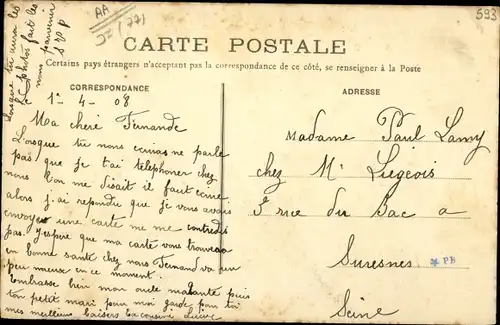 593
AA
Lorsque tu auras les
photos fait les
nous parvenir
S v P
CARTE POSTALE
Certains pays étrangers n'acceptant pas la correspondance de ce côté, se renseigner à la Poste
CORRESPONDANCE
ADRESSE
Le 1- 4 - 08
Ma cheré Fernande
Lorsque tu nous ecriras ne parle
pas que je t'ai telephoner chez
nous l'on me disait il faut ecrire
alors j'ai repondu que je vous avais
envoyer une carte ne me contredis
pas. J'espere que ma carte vous trouveras
en bonne santé chez nous Fernand va un
peu mieux en ce moment.
Embrasse bien mon oncle ma tante puis
ton petit mari pour moi garde pour toi
mes meilleurs baisers ta cousine Lucie
Madame Paul Lamy
chez Mr Liegeois
rue du Bac a
Suresnes
*PB
Seine